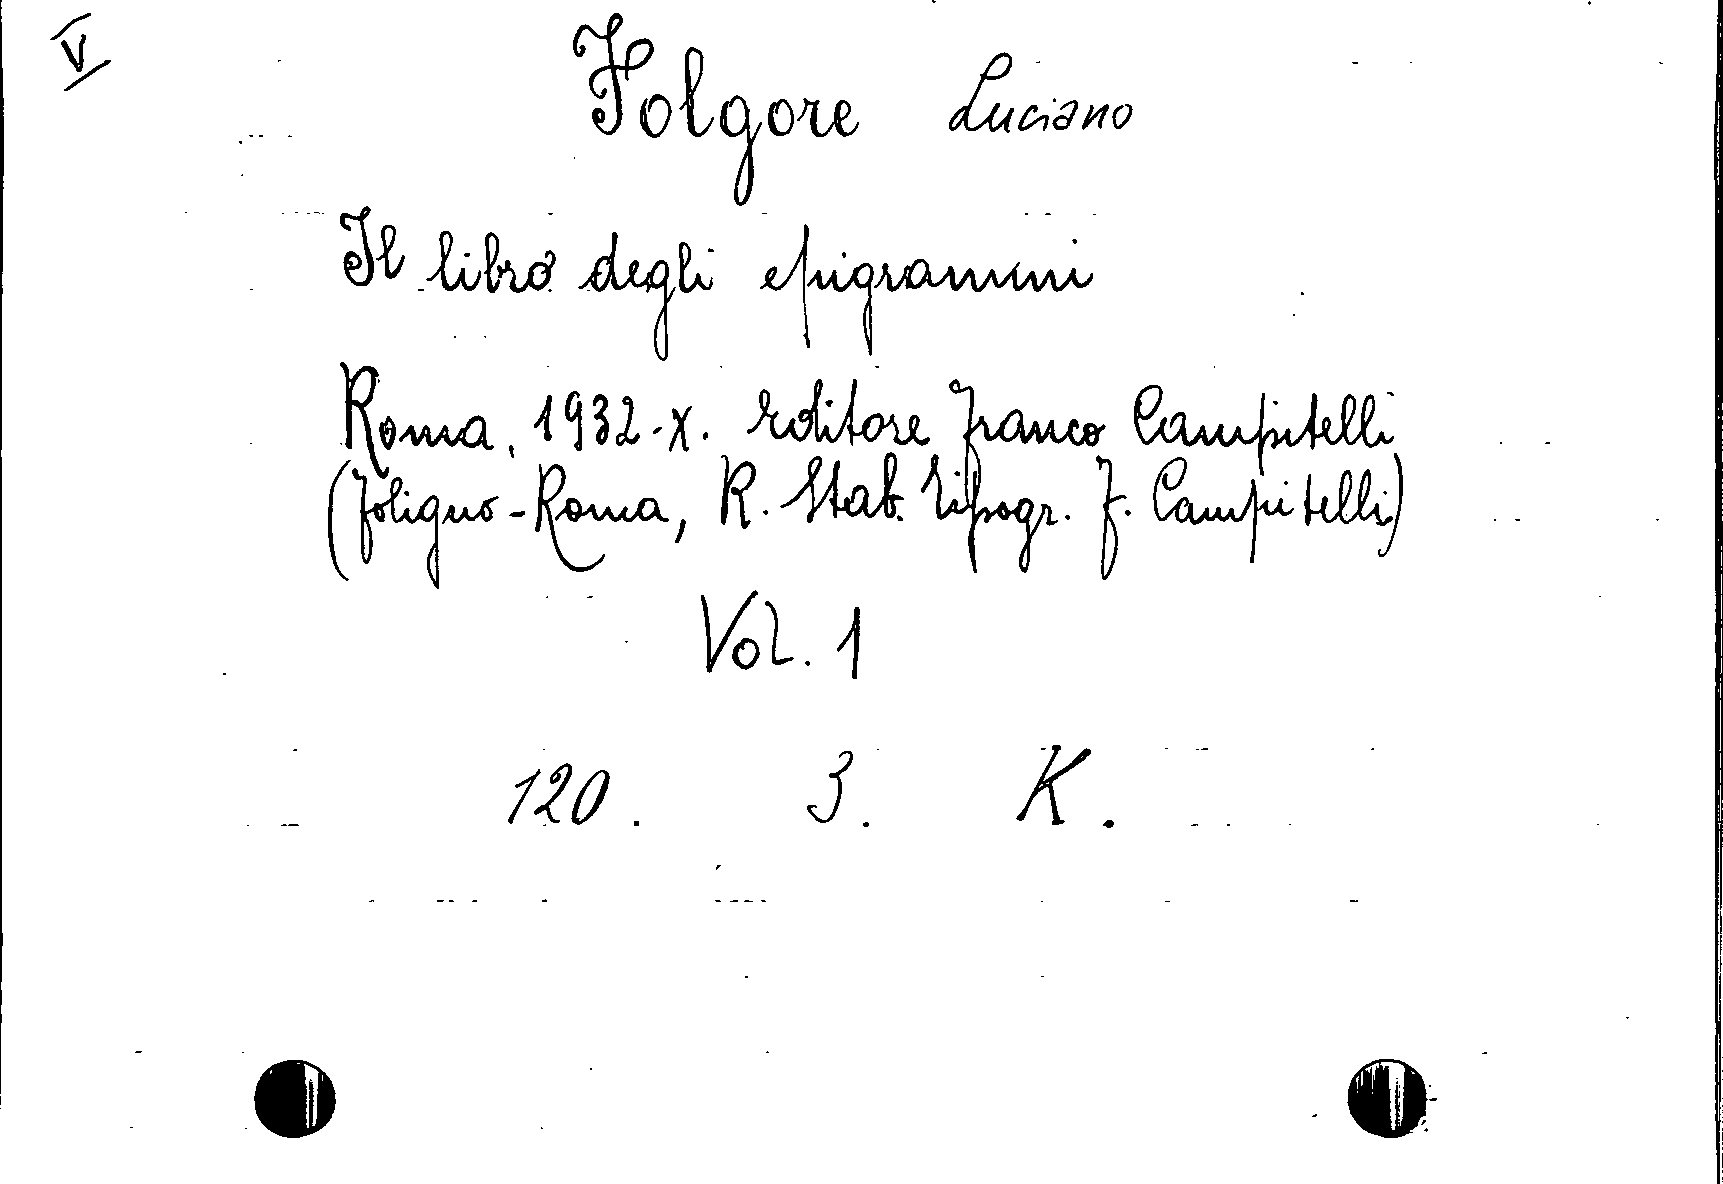 V
Folgore Luciano
Il libro degli epigrammi
Roma, 1932-X. Editore Franco Campitelli
(Foligno-Roma, R. Stab. Tipogr. F. Campitelli)
Vol. 1
120. 3. K.